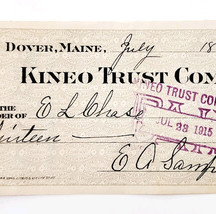 DOVER, MAINE, July 18
KINEO TRUST COM
THE
ER OF E L Chase
KINEO TRUST CO
PAID
JUL 23 1915
E A Samp